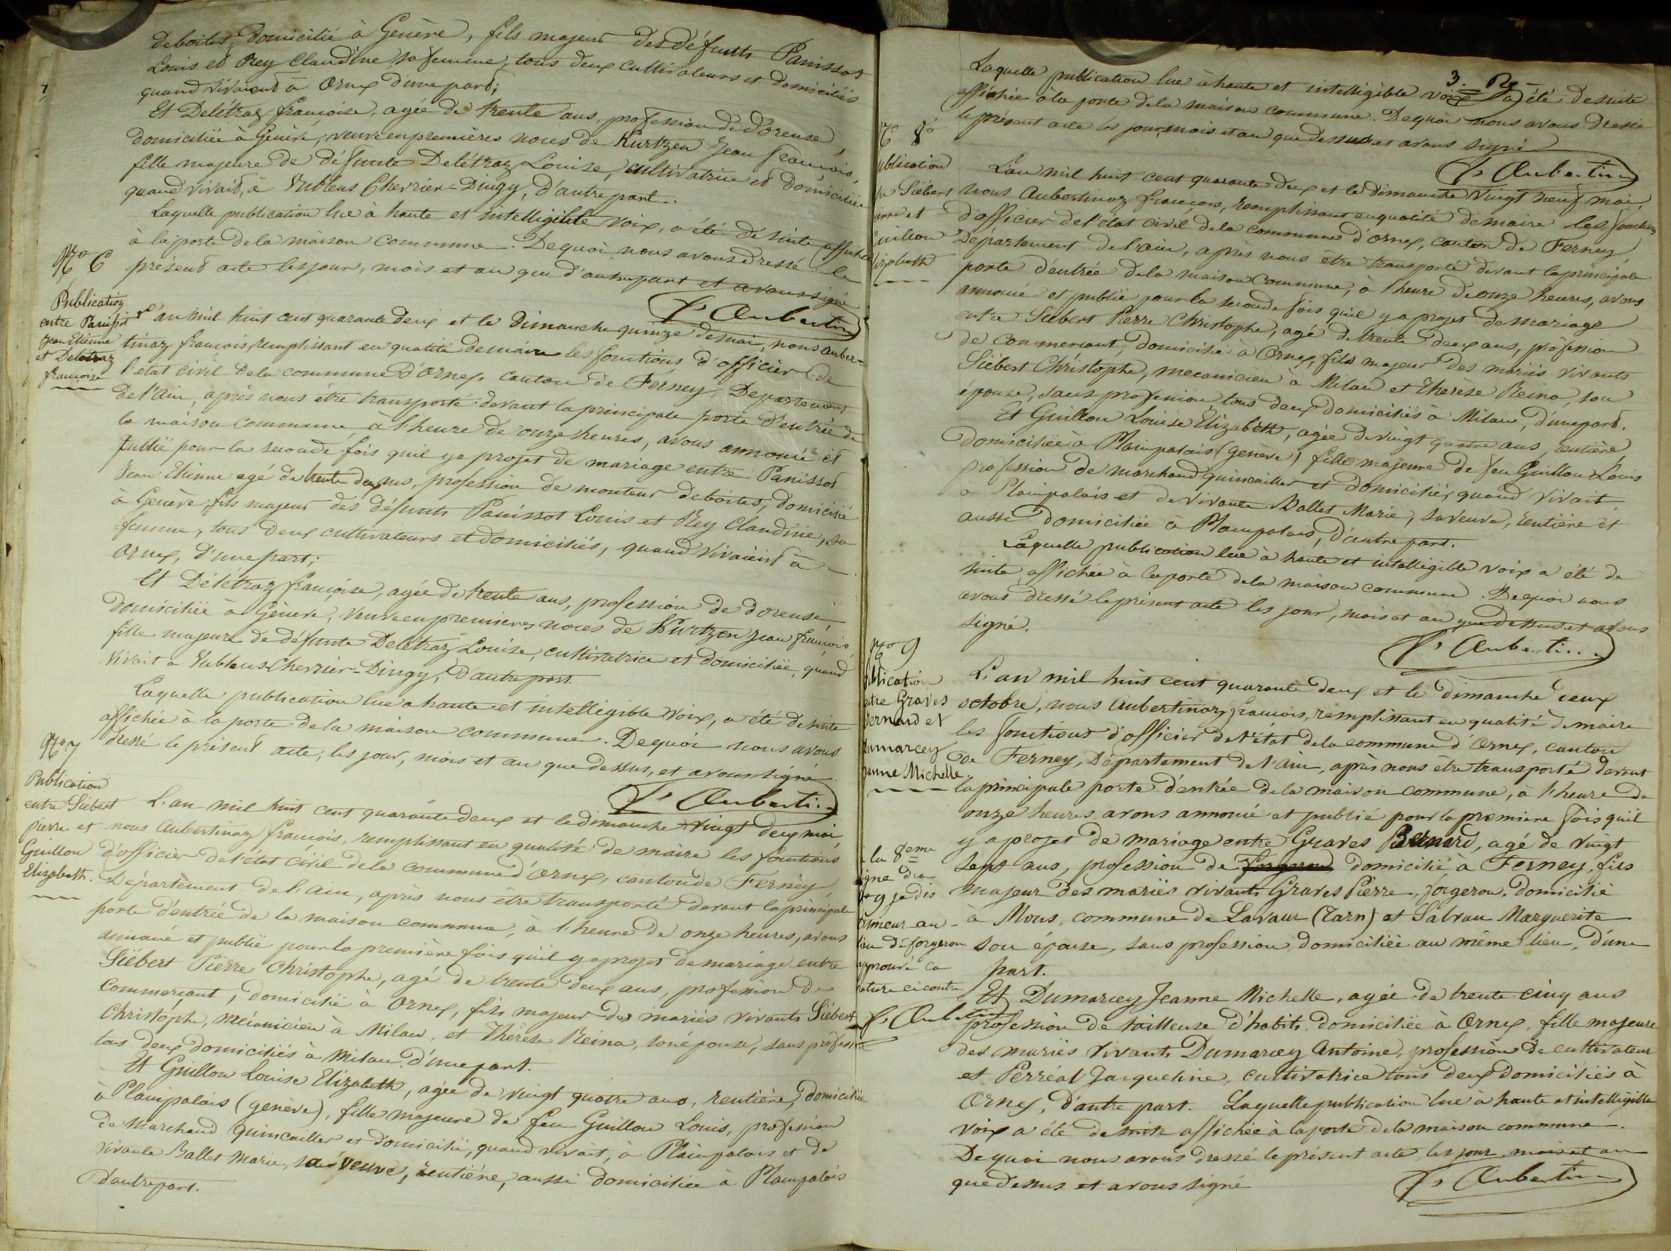 deboites, domicilié à Genève, fils majeur des défunts Panissot
Louis et Rey Claudine sa femme, tous deux cultivateurs et domiciliés
quand vivaient à Ornex d'une part;
Et Delétraz françoise, agée de trente ans, profession de Doreuse,
domiciliée à Genève, veuve en premières noces de Kurtzen Jean françois,
fille majeure de défunte Delétraz Louise, cultivatrice et domiciliée
quand vivait, à Vublens Chevrier-Dingy, d'autre part.
Laquelle publication lue à haute et intelligible voix, a été de suite affichée
à la porte de la maison commune. De quoi nous avons dressé le
présent acte les jour, mois et an que d'autre part et avons signé
fs Aubertin
No 6
Publication
entre Panissot
Jean Etienne
et Delétraz
françoise
L'an mil huit cent quarante deux et le Dimanche quinze de mai, nous Auber-
tinaz françois, remplissant en qualité de maire les fonctions d'officier de
l'état civil de la commune d'Ornex, canton de Ferney, Département
De l'Ain, après nous être transporté devant la principale porte d'entrée de
la maison commune à l'heure de onze heures, avons annoncé et
publié pour la seconde fois qu'il y a projet de mariage entre Panissot
Jean Etienne agé de trente deux ans, profession de monteur de boites, domicilié
à Genève fils majeur des défunts Panissot Louis et Rey Claudine, sa
femme, tous deux cultivateurs et domiciliés, quand vivaient à
Ornex, d'une part;
Et Delétraz françoise, agée de trente ans, profession de doreuse,
domiciliée à Genève, veuve en premieres noces de Kurtzen Jean francois,
fille majeure de défunte Delétraz Louise, cultivatrice et domiciliée, quand
vivait à Vublens-Chevrier-Dingy, D'autre part.
Laquelle publication lue a haute et intelligible voix, a été de suite
affichée à la porte de la maison commune. De quoi nous avons
dressé le présent acte, les jour, mois et an que dessus, et avons signé
fs Aubertin
No 7
Publication
entre Siebert
Pierre et
Guillou
Elizabeth.
L'an mil huit cent quarante deux et le dimanche vingt deux mai
nous Aubertinaz francois, remplissant en qualité de maire les fonctions
d'officier de l'état civil de la commune d'Ornex, canton de Ferney
Département de l'ain, après nous être transporté devant la principale
porte d'entrée de la maison commune, à l'heure de onze heures, avons
annoncé et publié pour la première fois qu'il y a projet de mariage entre
Siebert Pierre Christophe, agé de trente deux ans, profession de
Commercant, domicilié à Ornex, fils majeur des mariés vivants Siébert
Christophe, mécanicien à Milan, et Thérèse Reina, son épouse, sans profession
tous deux domiciliés à Milan d'une part.
Et Guillou Louise Elizabeth, agée de vingt quatre ans, rentière, domiciliée
à Plainpalais (genève), fille majeure de feu Guillou Louis, profession
de marchand quincailler et domicilié, quand vivait, à Plainpalais et de
vivante Ballet Marie, sa veuve, rentière, aussi domiciliée à Plainpalais
d'autre part.
3.
Laquelle publication lue à haute et intelligible voix a été de suite
affichée à la porte de la maison commune. De quoi nous avons dressé
le présent acte les jour, mois et an que dessus et avons signé
fs Aubertin
No 8
ublication
Siebert
et
uillou
lizabeth
L'an mil huit cent quarante deux et le dimanche vingt neuf mai,
Nous Aubertinaz francois, remplissant en qualité de maire les fonctions
d'officier de l'état civil de la commune d'Ornex, canton de Ferney
Département de l'ain, après nous être transporté devant la principale
porte d'entrée de la maison commune, à l'heure de onze heures, avons
annoncé et publié pour la seconde fois qu'il y a projet de mariage
entre Siebert Pierre Christophe, agé de trente deux ans, profession
de commercant, domicilié à Ornex, fils majeur des mariés vivants
Siébert Christophe, mecanicien à Milan et Therèse Reina, son
épouse, sans profession tous deux domiciliés à Milan, d'une part.
Et Guillou Louise Elizabeth, agée de vingt quatre ans, rentière
domiciliée à Plainpalais (genève) fille majeure de feu Guillou Louis
profession de marchand quincailler et domicilié, quand vivait,
à Plainpalais et de vivante Ballet Marie, sa veuve, rentière et
aussi domiciliée à Plainpalais, d'autre part.
Laquelle publication lue à haute et intelligible voix a été de
suite affichée à la porte de la maison commune. De quoi nous
avons dressé le présent acte les jour, mois et an que dessus et avons
signé.
fs Aubertin
No 9
ublication
ntre Graves
Bernard et
umarcey
eanne Michelle
L'an mil huit cent quarante deux et le dimanche deux
octobre, nous Aubertinaz, francois, remplissant en qualité de maire
les fonctions d'officier de l'état de la commune d'Ornex, canton
de Ferney, Département de l'Ain, après nous etre transporté devant
la principale porte d'entrée de la maison commune, à l'heure de
onze heures, avons annoncé et publié pour la première fois qu'il
y a projet de mariage entre Graves Bernard, agé de vingt
sept ans, profession de forgeron domicilié à Ferney, fils
majeur des mariés vivants Graves Pierre, forgeron, domicilié
à Mous, commune de Lavaur (Tarn) et Sabrau Marguerite
son épouse, sans profession domiciliée au même lieu, d'une
part.
la 8eme
igne du
No 9 je dis
au
lieu de forgeron
approuvé la
rature ci contre
fs Aubertin
Et Dumarcey Jeanne Michelle, agée de trente cinq ans
profession de tailleuse d'habits domiciliée à Ornex, fille majeure
des mariés vivants Dumarcey Antoine, profession de cultivateur
et Perréal Jacqueline, cultivatrice tous deux domiciliés à
Ornex, d'autre part. Laquelle publication lue a haute et intelligible
voix a été de suite affichée à la porte de la maison commune.
De quoi nous avons dressé le présent acte les jour mois et an
que dessus et avons signé
fs Aubertin